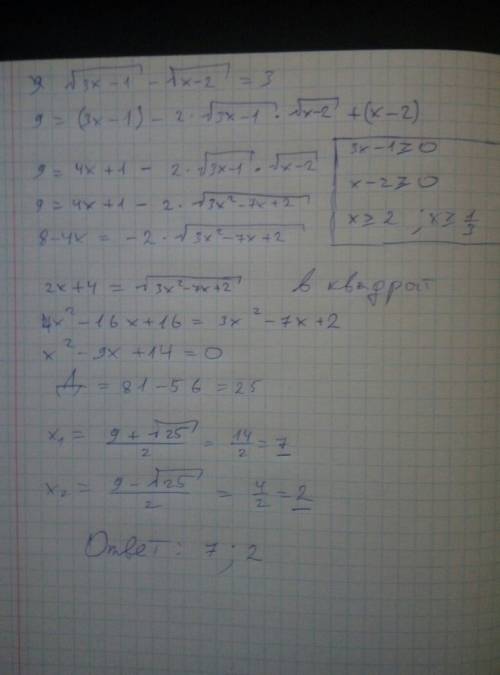 9) √(3x-1) - √(x-2) = 3
9 = (3x-1) - 2·√(3x-1)·√(x-2) + (x-2)
9 = 4x+1 - 2·√(3x-1)·√(x-2)
3x-1≥0
9 = 4x+1 - 2·√(3x²-7x+2)
x-2≥0
8-4x = -2·√(3x²-7x+2)
x≥2 ; x≥1/3
2x+4 = √(3x²-7x+2) в квадрат
4x²-16x+16 = 3x²-7x+2
x²-9x+14=0
Д = 81-56=25
x₁ = (9+√25)/2 = 14/2 = 7
x₂ = (9-√25)/2 = 4/2 = 2
Ответ: 7; 2